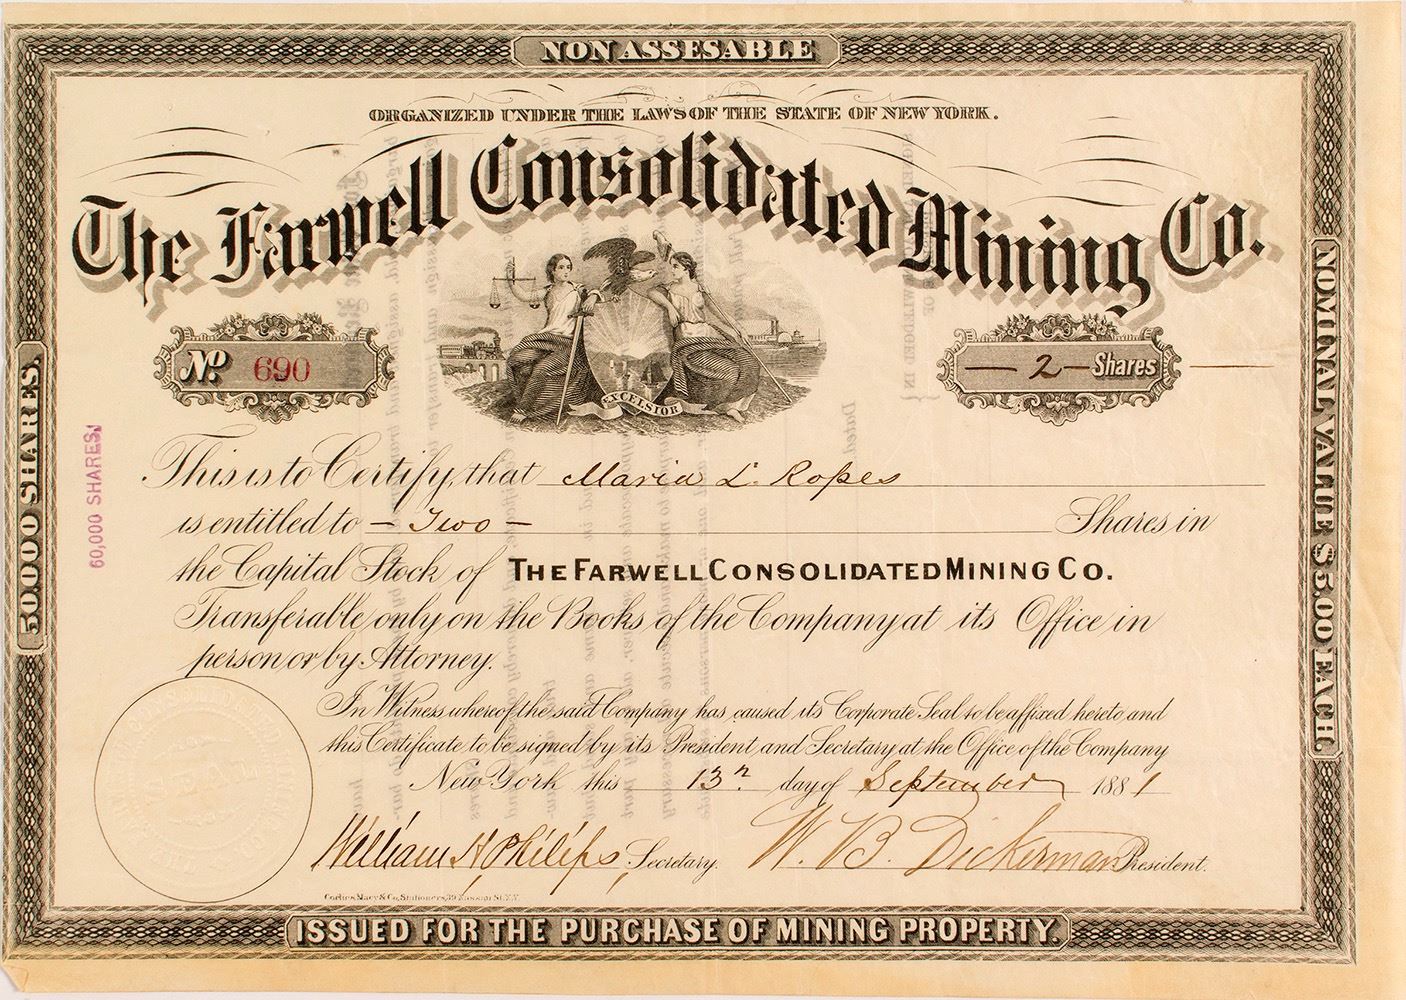 NON ASSESABLE
ORGANIZED UNDER THE LAWS OF THE STATE OF NEW YORK.
The Farwell Consolidated Mining Co.
No. 690
EXCELSIOR
— 2 — Shares
50,000 SHARES.
60,000 SHARES.
NOMINAL VALUE $5,00 EACH.
This is to Certify, that Maria L. Ropes
is entitled to — Two — Shares in
the Capital Stock of THE FARWELL CONSOLIDATED MINING CO.
Transferable only on the Books of the Company at its Office in
person or by Attorney.
In Witness whereof the said Company has caused its Corporate Seal to be affixed hereto and
this Certificate to be signed by its President and Secretary at the Office of the Company
New York this 13th day of September 1881
William H Philips, Secretary. W. B. Dickerman President.
Corlies Macy & Co, Stationers, 39 Nassau St. N.Y.
ISSUED FOR THE PURCHASE OF MINING PROPERTY.